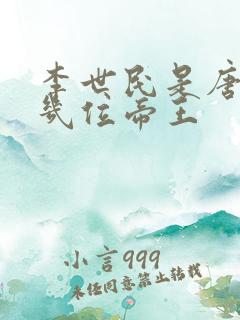 李世民是唐
几位帝王
小言999
未经同意禁止转载